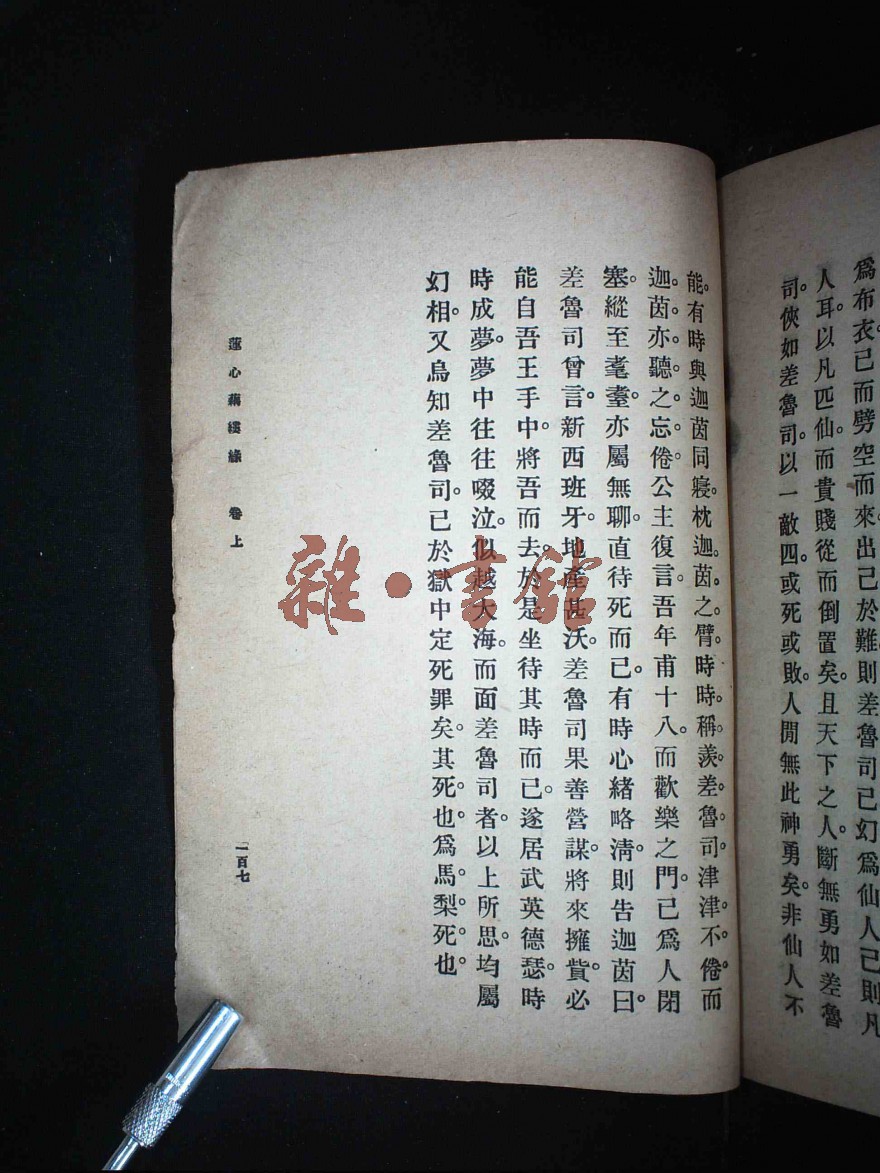 爲布衣已而劈空而來。出己於難。則差魯司已幻爲仙人。己則凡
人耳。以凡匹仙。而貴賤從而倒置矣。且天下之人。斷無勇如差魯
司。俠如差魯司。以一敵四。或死或敗。人閒無此神勇矣。非仙人不
能。有時與迦茵同寢。枕迦茵之臂。時時稱羨差魯司。津津不倦。而
迦茵亦聽之忘倦。公主復言。吾年甫十八。而歡樂之門。已爲人閉
塞。縱至耄耋。亦屬無聊。直待死而已。有時心緒略淸。則告迦茵曰。
差魯司曾言。新西班牙。地產甚沃。差魯司果善營謀。將來擁貲。必
能自吾王手中。將吾而去。於是坐待其時而已。遂居武英德瑟。時
時成夢。夢中往往啜泣。似越大海。而面差魯司者。以上所思。均屬
幻相。又烏知差魯司。已於獄中定死罪矣。其死也。爲馬梨死也。
蓮心藕縷緣 卷上
一百七
雜·書館